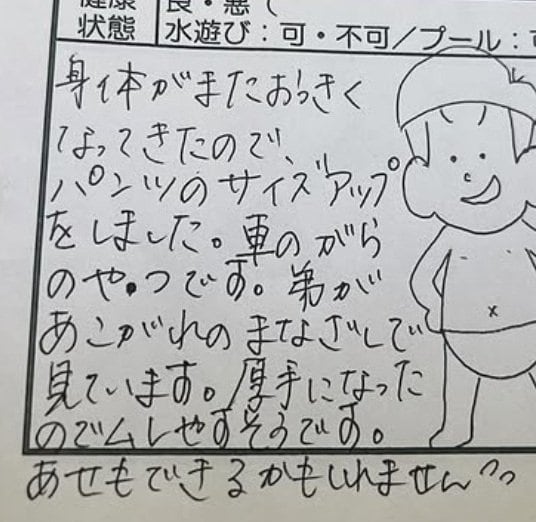 健康
状態
良・悪（
水遊び：可・不可／プール：可
身体がまたおっきく
なってきたので、
パンツのサイズアップ
をしました。車のがら
のやつです。弟が
あこがれのまなざしで
見ています。厚手になった
のでムレやすそうです。
あせもできるかもしれません